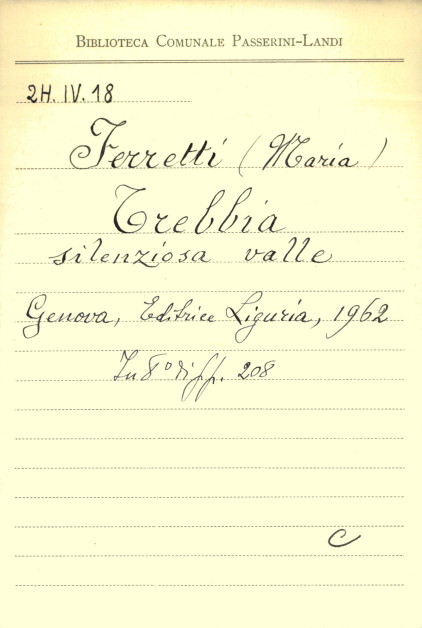 BIBLIOTECA COMUNALE PASSERINI-LANDI
2H. IV. 18
Ferretti (Maria)
Trebbia
silenziosa valle
Genova, Editrice Liguria, 1962
In 8° di pp. 208
C